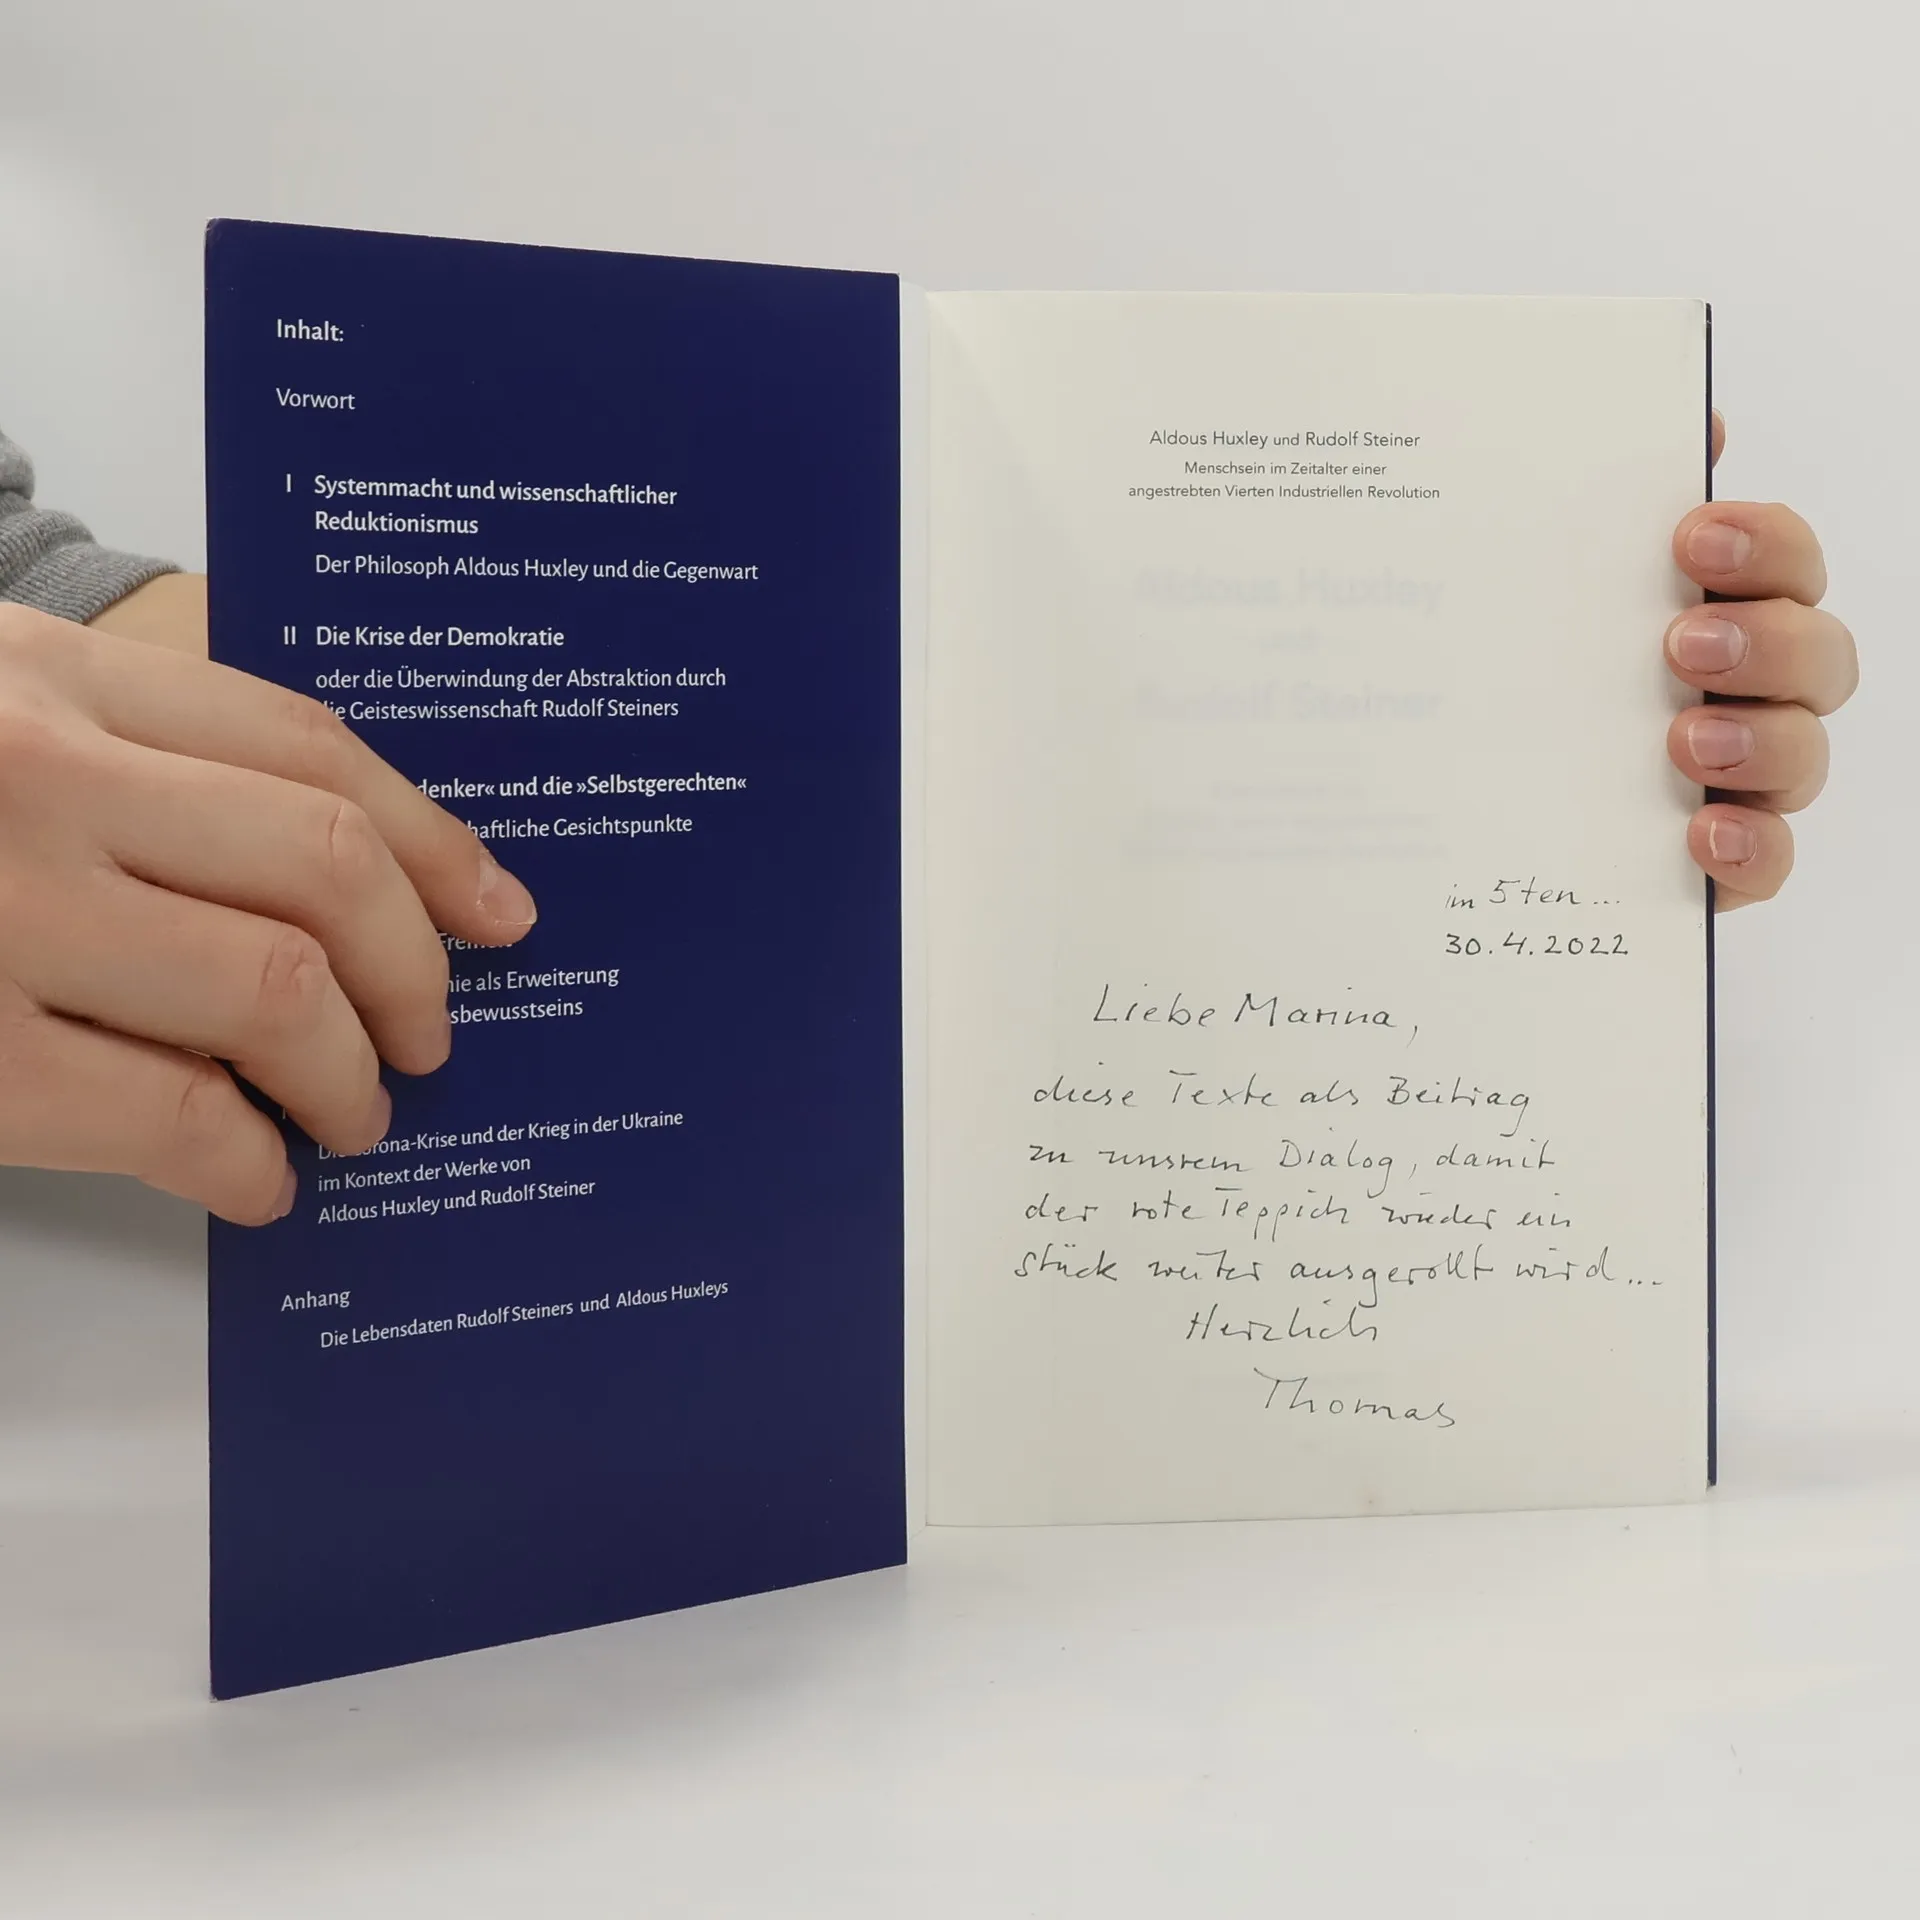 Inhalt:
Vorwort
I Systemmacht und wissenschaftlicher
Reduktionismus
Der Philosoph Aldous Huxley und die Gegenwart
II Die Krise der Demokratie
oder die Überwindung der Abstraktion durch
die Geisteswissenschaft Rudolf Steiners
denker« und die »Selbstgerechten«
haftliche Gesichtspunkte
nie als Erweiterung
sbewusstseins
Corona-Krise und der Krieg in der Ukraine
im Kontext der Werke von
Aldous Huxley und Rudolf Steiner
Anhang
Die Lebensdaten Rudolf Steiners und Aldous Huxleys
Aldous Huxley und Rudolf Steiner
Menschsein im Zeitalter einer
angestrebten Vierten Industriellen Revolution
Aldous Huxley
und
Rudolf Steiner
im 5ten...
30.4.2022
Liebe Marina,
diese Texte als Beitrag
zu unsrem Dialog, damit
der rote Teppich wieder ein
Stück weiter ausgerollt wird...
Herzlich
Thomas